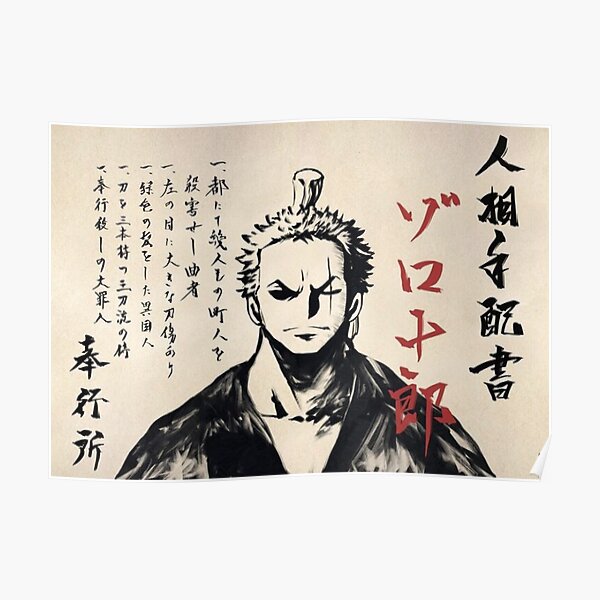 人相手配書
ゾロ十郎
一、都にて幾人もの町人を
殺害せし曲者
一、左の目に大きな刀傷あり
一、緑色の髪をした異国人
一、刀を三本持つ三刀流の侍
一、奉行殺しの大罪人
奉行所